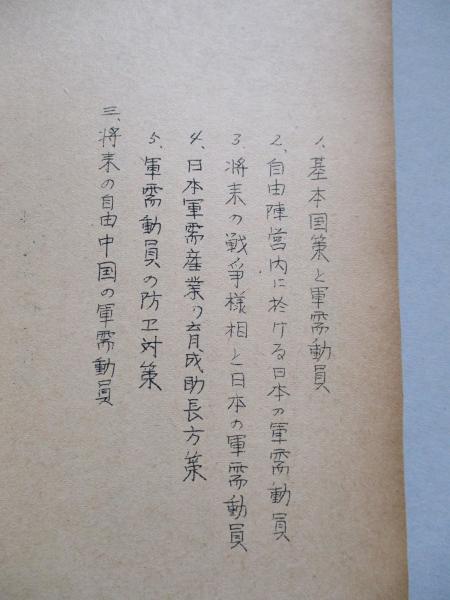 1、基本国策と軍需動員
2、自由陣営内に於ける日本の軍需動員
3、将来の戦争様相と日本の軍需動員
4、日本軍需産業の育成助長方策
5、軍需動員の防卫対策
三、将来の自由中国の軍需動員